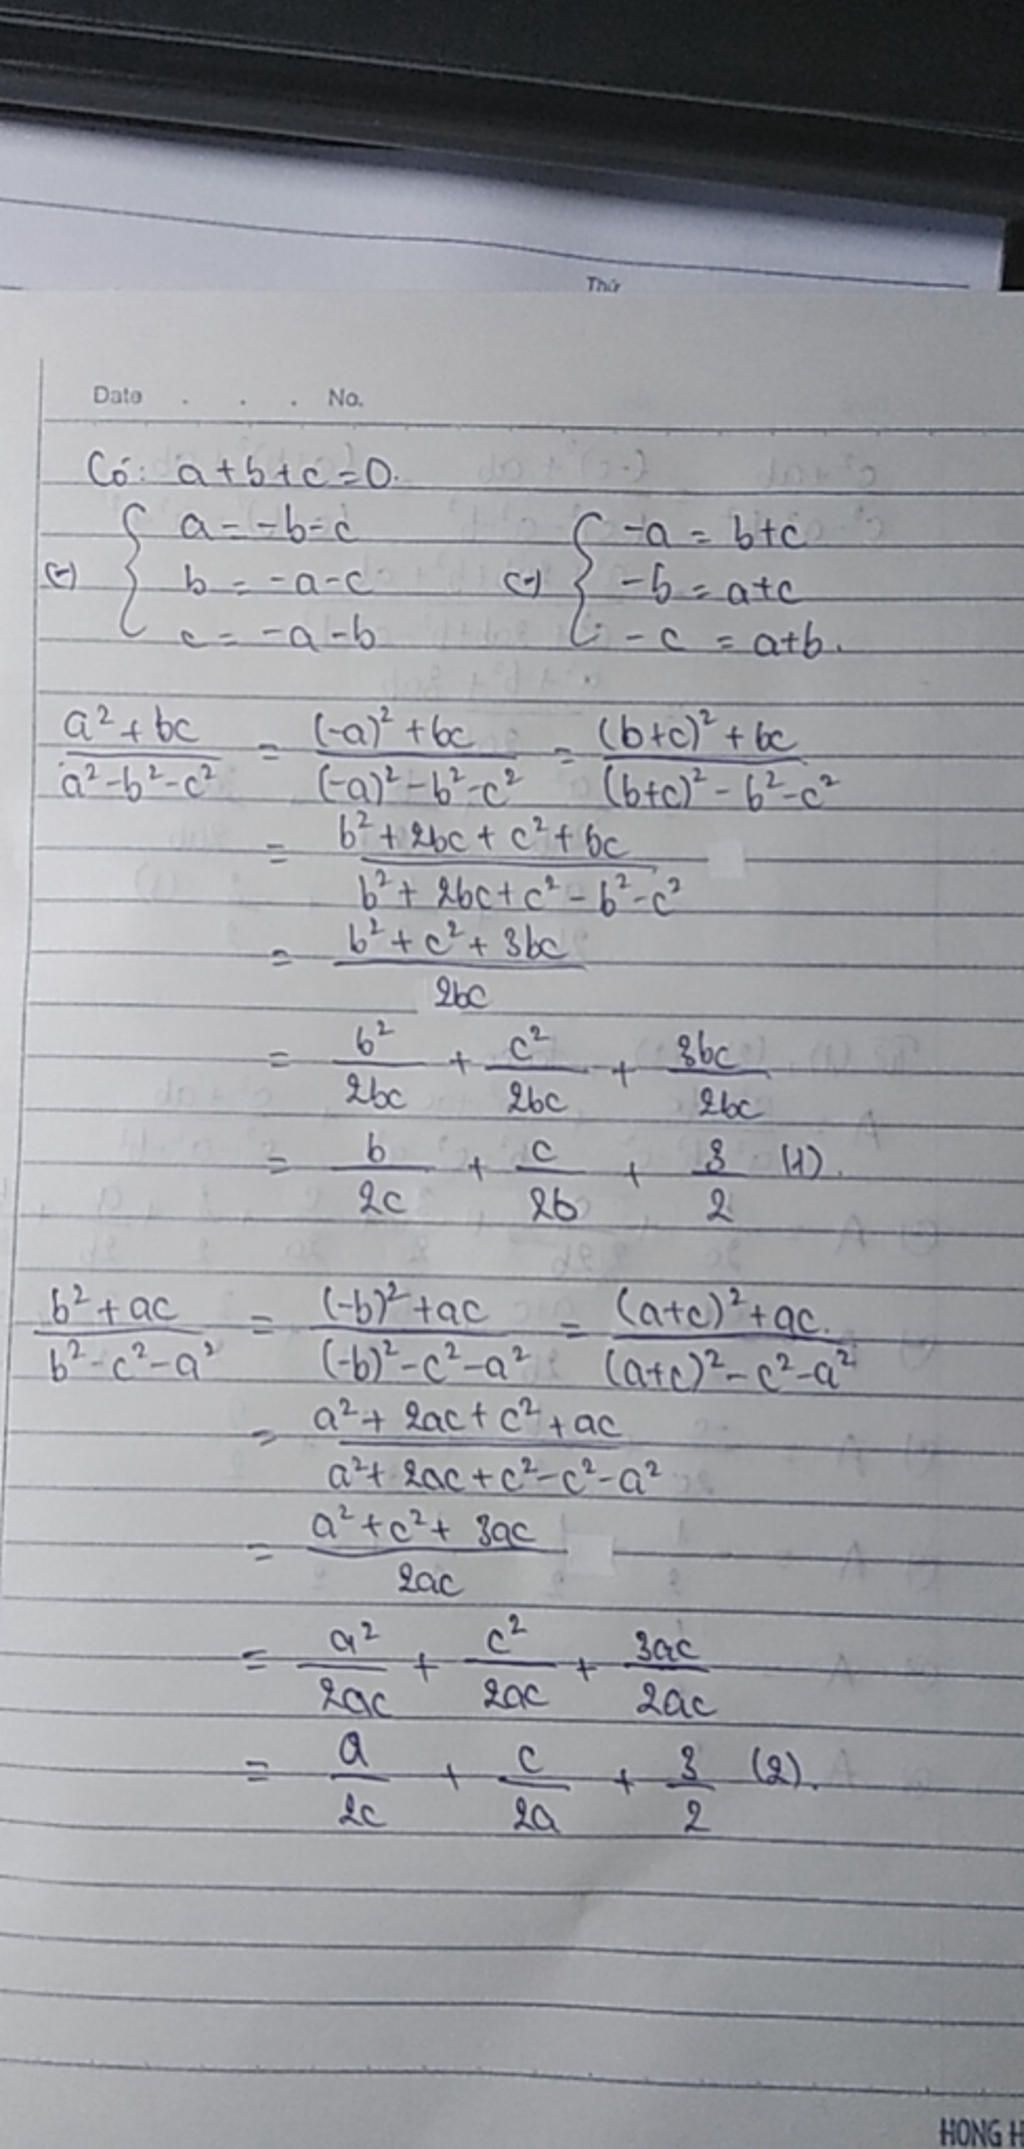 Thứ
Date . . . No.
Có: a+b+c=0.
(-) { a=-b-c (-) { -a = b+c
b = -a-c -b = a+c
c = -a-b -c = a+b.
(a²+bc)/(a²-b²-c²) = ((-a)²+bc)/((-a)²-b²-c²) = ((b+c)²+bc)/((b+c)²-b²-c²)
= (b²+2bc+c²+bc)/(b²+2bc+c²-b²-c²)
= (b²+c²+3bc)/(2bc)
= b²/2bc + c²/2bc + 3bc/2bc
= b/2c + c/2b + 3/2 (1).
(b²+ac)/(b²-c²-a²) = ((-b)²+ac)/((-b)²-c²-a²) = ((a+c)²+ac.)/((a+c)²-c²-a²)
= (a²+2ac+c²+ac)/(a²+2ac+c²-c²-a²)
= (a²+c²+3ac)/(2ac)
= a²/2ac + c²/2ac + 3ac/2ac
= a/2c + c/2a + 3/2 (2).
HONG H